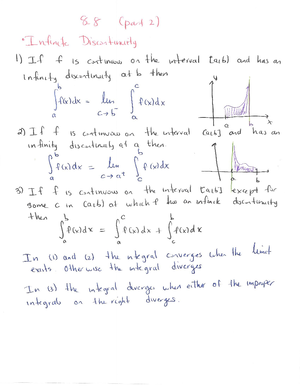 8.8 (part 2)
• Infinite Discontinuity
1) If f is continuous on the interval [a,b) and has an
infinity discontinuity at b then
∫_a^b f(x)dx = lim_{c→b⁻} ∫_a^c f(x)dx
2) If f is continuous on the interval (a,b] and has an
infinity discontinuity at a then
∫_a^b f(x)dx = lim_{c→a⁺} ∫_c^b f(x)dx
3) If f is continuous on the interval [a,b] except for
some c in (a,b) at which f has an infinite discontinuity
then
∫_a^b f(x)dx = ∫_a^c f(x)dx + ∫_c^b f(x)dx
In (1) and (2) the integral converges when the limit
exists otherwise the integral diverges
In (3) the integral diverges when either of the improper
integrals on the right diverges.
y
a
b
a
b